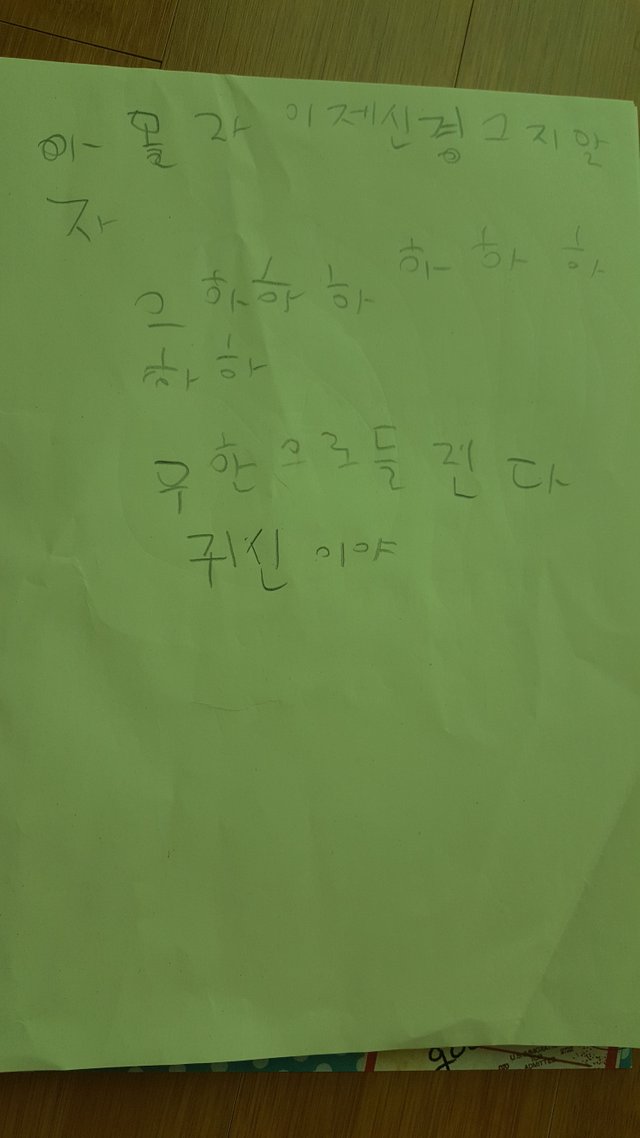 아 몰라 이제신경그지말
자
그 하하하 하하하
하하
무한으로들린다
귀신이야
go
ADMITTEE